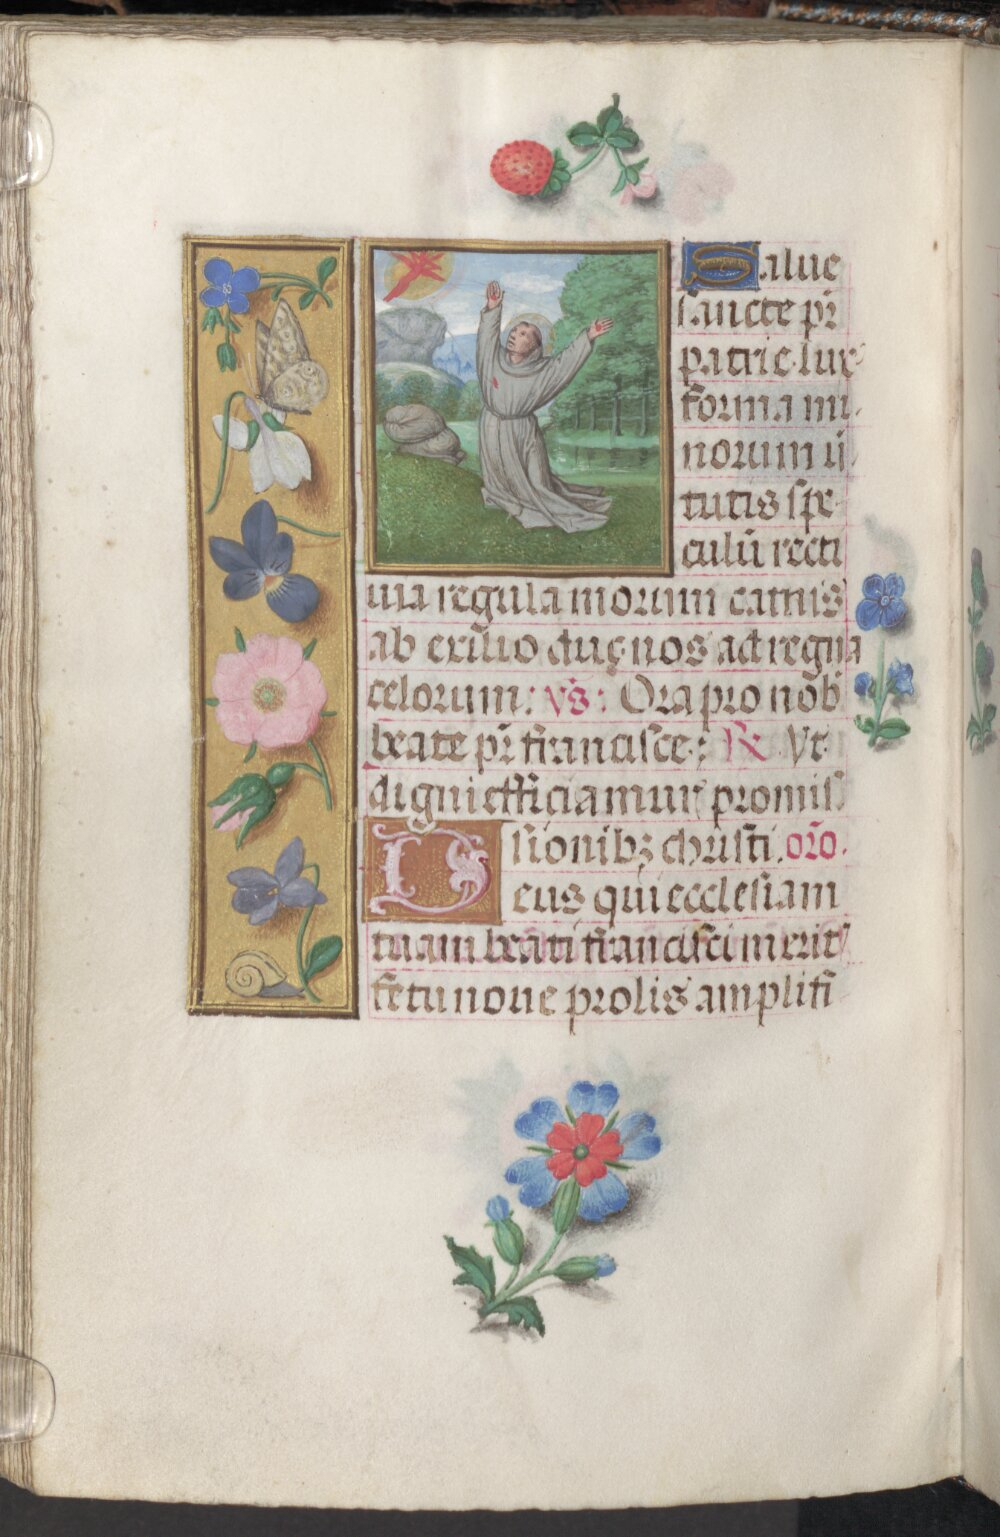 Salue
sancte pr̄
patrie lux
forma mi
norum ũ
tutis spe
culū recti
uia regula morum carnis
ab exilio duc nos ad regna
celorum: vs̄: Ora pro nob̄
beate pr̄ francisce: R̷ Vt
digni efficiamur promis
sionibꝫ christi. orō.
Deus qui ecclesiam
tuam beati francisci merit᷒
fetu noue prolis amplifi